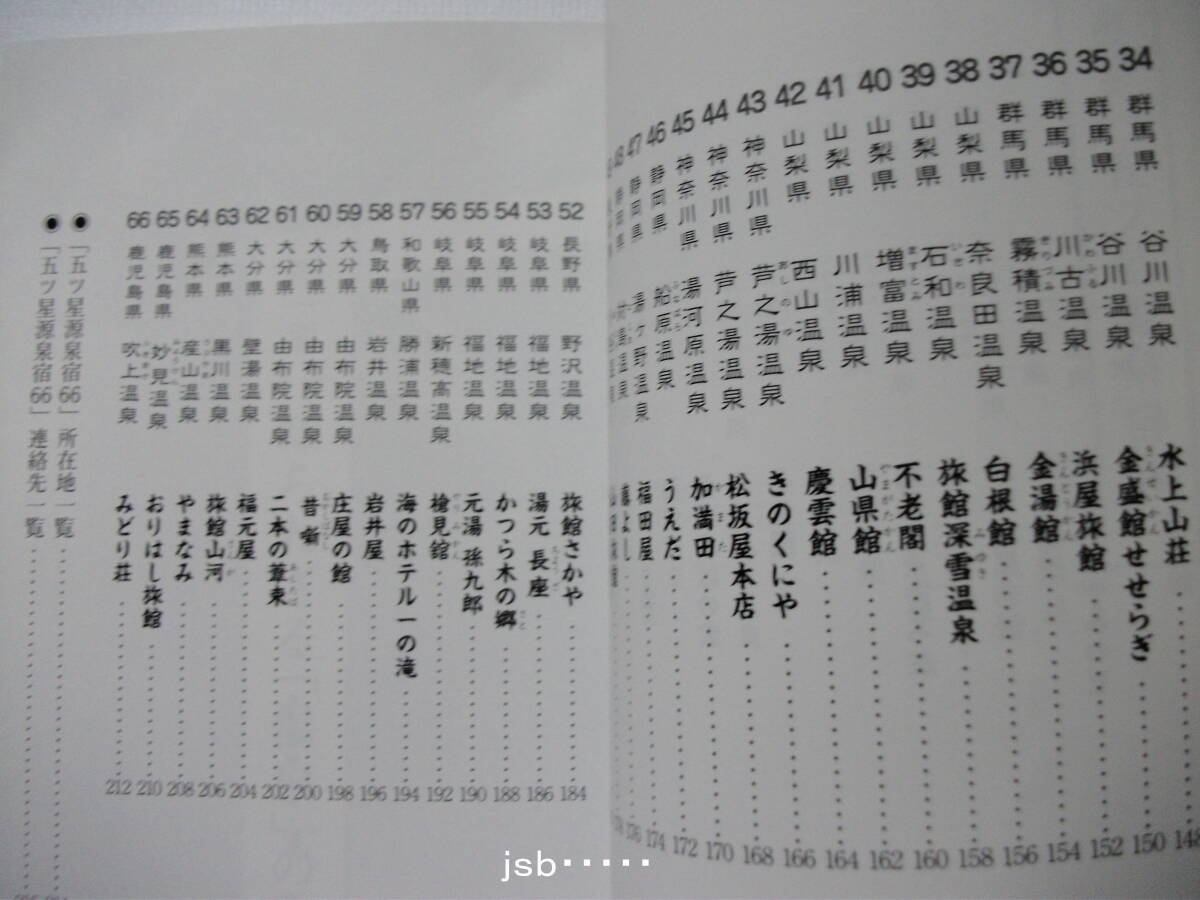 34 群馬県 谷川温泉 水上山荘 148
35 群馬県 谷川温泉 金盛館せせらぎ 150
36 群馬県 川古温泉 浜屋旅館 152
37 群馬県 霧積温泉 金湯館 154
38 山梨県 奈良田温泉 白根館 156
39 山梨県 石和温泉 旅館深雪温泉 158
40 山梨県 増富温泉 不老閣 160
41 山梨県 川浦温泉 山県館 162
42 山梨県 西山温泉 慶雲館 164
43 神奈川県 芦之湯温泉 きのくにや 166
44 神奈川県 芦之湯温泉 松坂屋本店 168
45 神奈川県 湯河原温泉 加満田 170
46 静岡県 船原温泉 うえだ 172
47 静岡県 湯ヶ野温泉 福田屋 174
48 静岡県 176
52 長野県 野沢温泉 旅館さかや 184
53 岐阜県 福地温泉 湯元 長座 186
54 岐阜県 福地温泉 かつら木の郷 188
55 岐阜県 福地温泉 元湯 孫九郎 190
56 岐阜県 新穂高温泉 槍見舘 192
57 和歌山県 勝浦温泉 海のホテル一の滝 194
58 鳥取県 岩井温泉 岩井屋 196
59 大分県 由布院温泉 庄屋の館 198
60 大分県 由布院温泉 昔噺 200
61 大分県 由布院温泉 二本の葦束 202
62 大分県 壁湯温泉 福元屋 204
63 熊本県 黒川温泉 旅館山河 206
64 熊本県 産山温泉 やまなみ 208
65 鹿児島県 妙見温泉 おりはし旅館 210
66 鹿児島県 吹上温泉 みどり荘 212
●「五ツ星源泉宿66」所在地一覧
●「五ツ星源泉宿66」連絡先一覧
jsb・・・・・